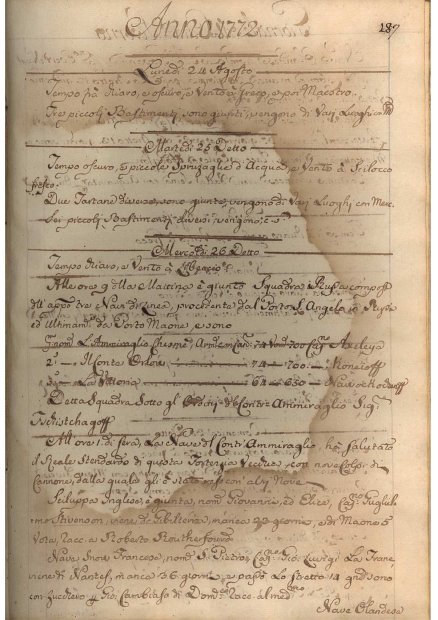 Anno 1772
187
Lunedì 24 Agosto
Tempo frà chiaro, e oscuro, e Vento à Greco, e poi Maestro.
Tre piccoli Bastimenti, sono giunti, vengono di Varj Luoghi con
Martedì 25 Detto
Tempo oscuro, e piccole Spruzaglie d'Acqua, e Vento à Scilocco
fresco.
Due Tartane diverse, sono giunte, vengono di Varj Luoghi con Merc.
Sei piccoli Bastimenti diversi, vengono
Mercoldì 26 Detto
Tempo chiaro, e Vento à
All'ora 9 della Mattina è giunto Squadra Russa composta
tre Navi di Linea, procedente dal Porto S. Angelo in
ed Ultimam. da Porto Maone, e sono
L'Ammiraglio Chesme, Arm. Can. 74 700 Cap.
2ª Il Conte Orlow 74 700
La Vittoria 64 650
Detta Squadra Sotto gl' Ordini del Contr' Ammiraglio Sig.
All'ora 1 di sera, La Nave del Contr' Ammiraglio hà Salutato
il Reale Stendardo di questa Fortezza Vecchia, con nove Colpi di
Cannone, dalla quale gli è stato reso con altri Nove
Scaluppa Inglese, è giunta, nom. Giovanni, ed Elisa, Cap. Guglielmo
Stivenson, viene da Gibilterra, manca 27 giorni, e di Maone 5
Vota, Racc. a Roberto Routherfourd
Nave Francese, nom. S. Pietro, Cap. Gio. Luigi La Frane,
viene di Nantes, manca 36 giorni, e passò Lo Stretto 14 giorni sono
con Zucchero Gio. Cambiaso di Dom. Racc. al med.
Nave Olandese